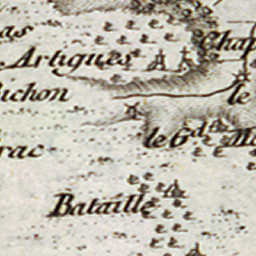 as
Artigues
Chap
uchon
le
le Gd. Ma
rac
Bataille